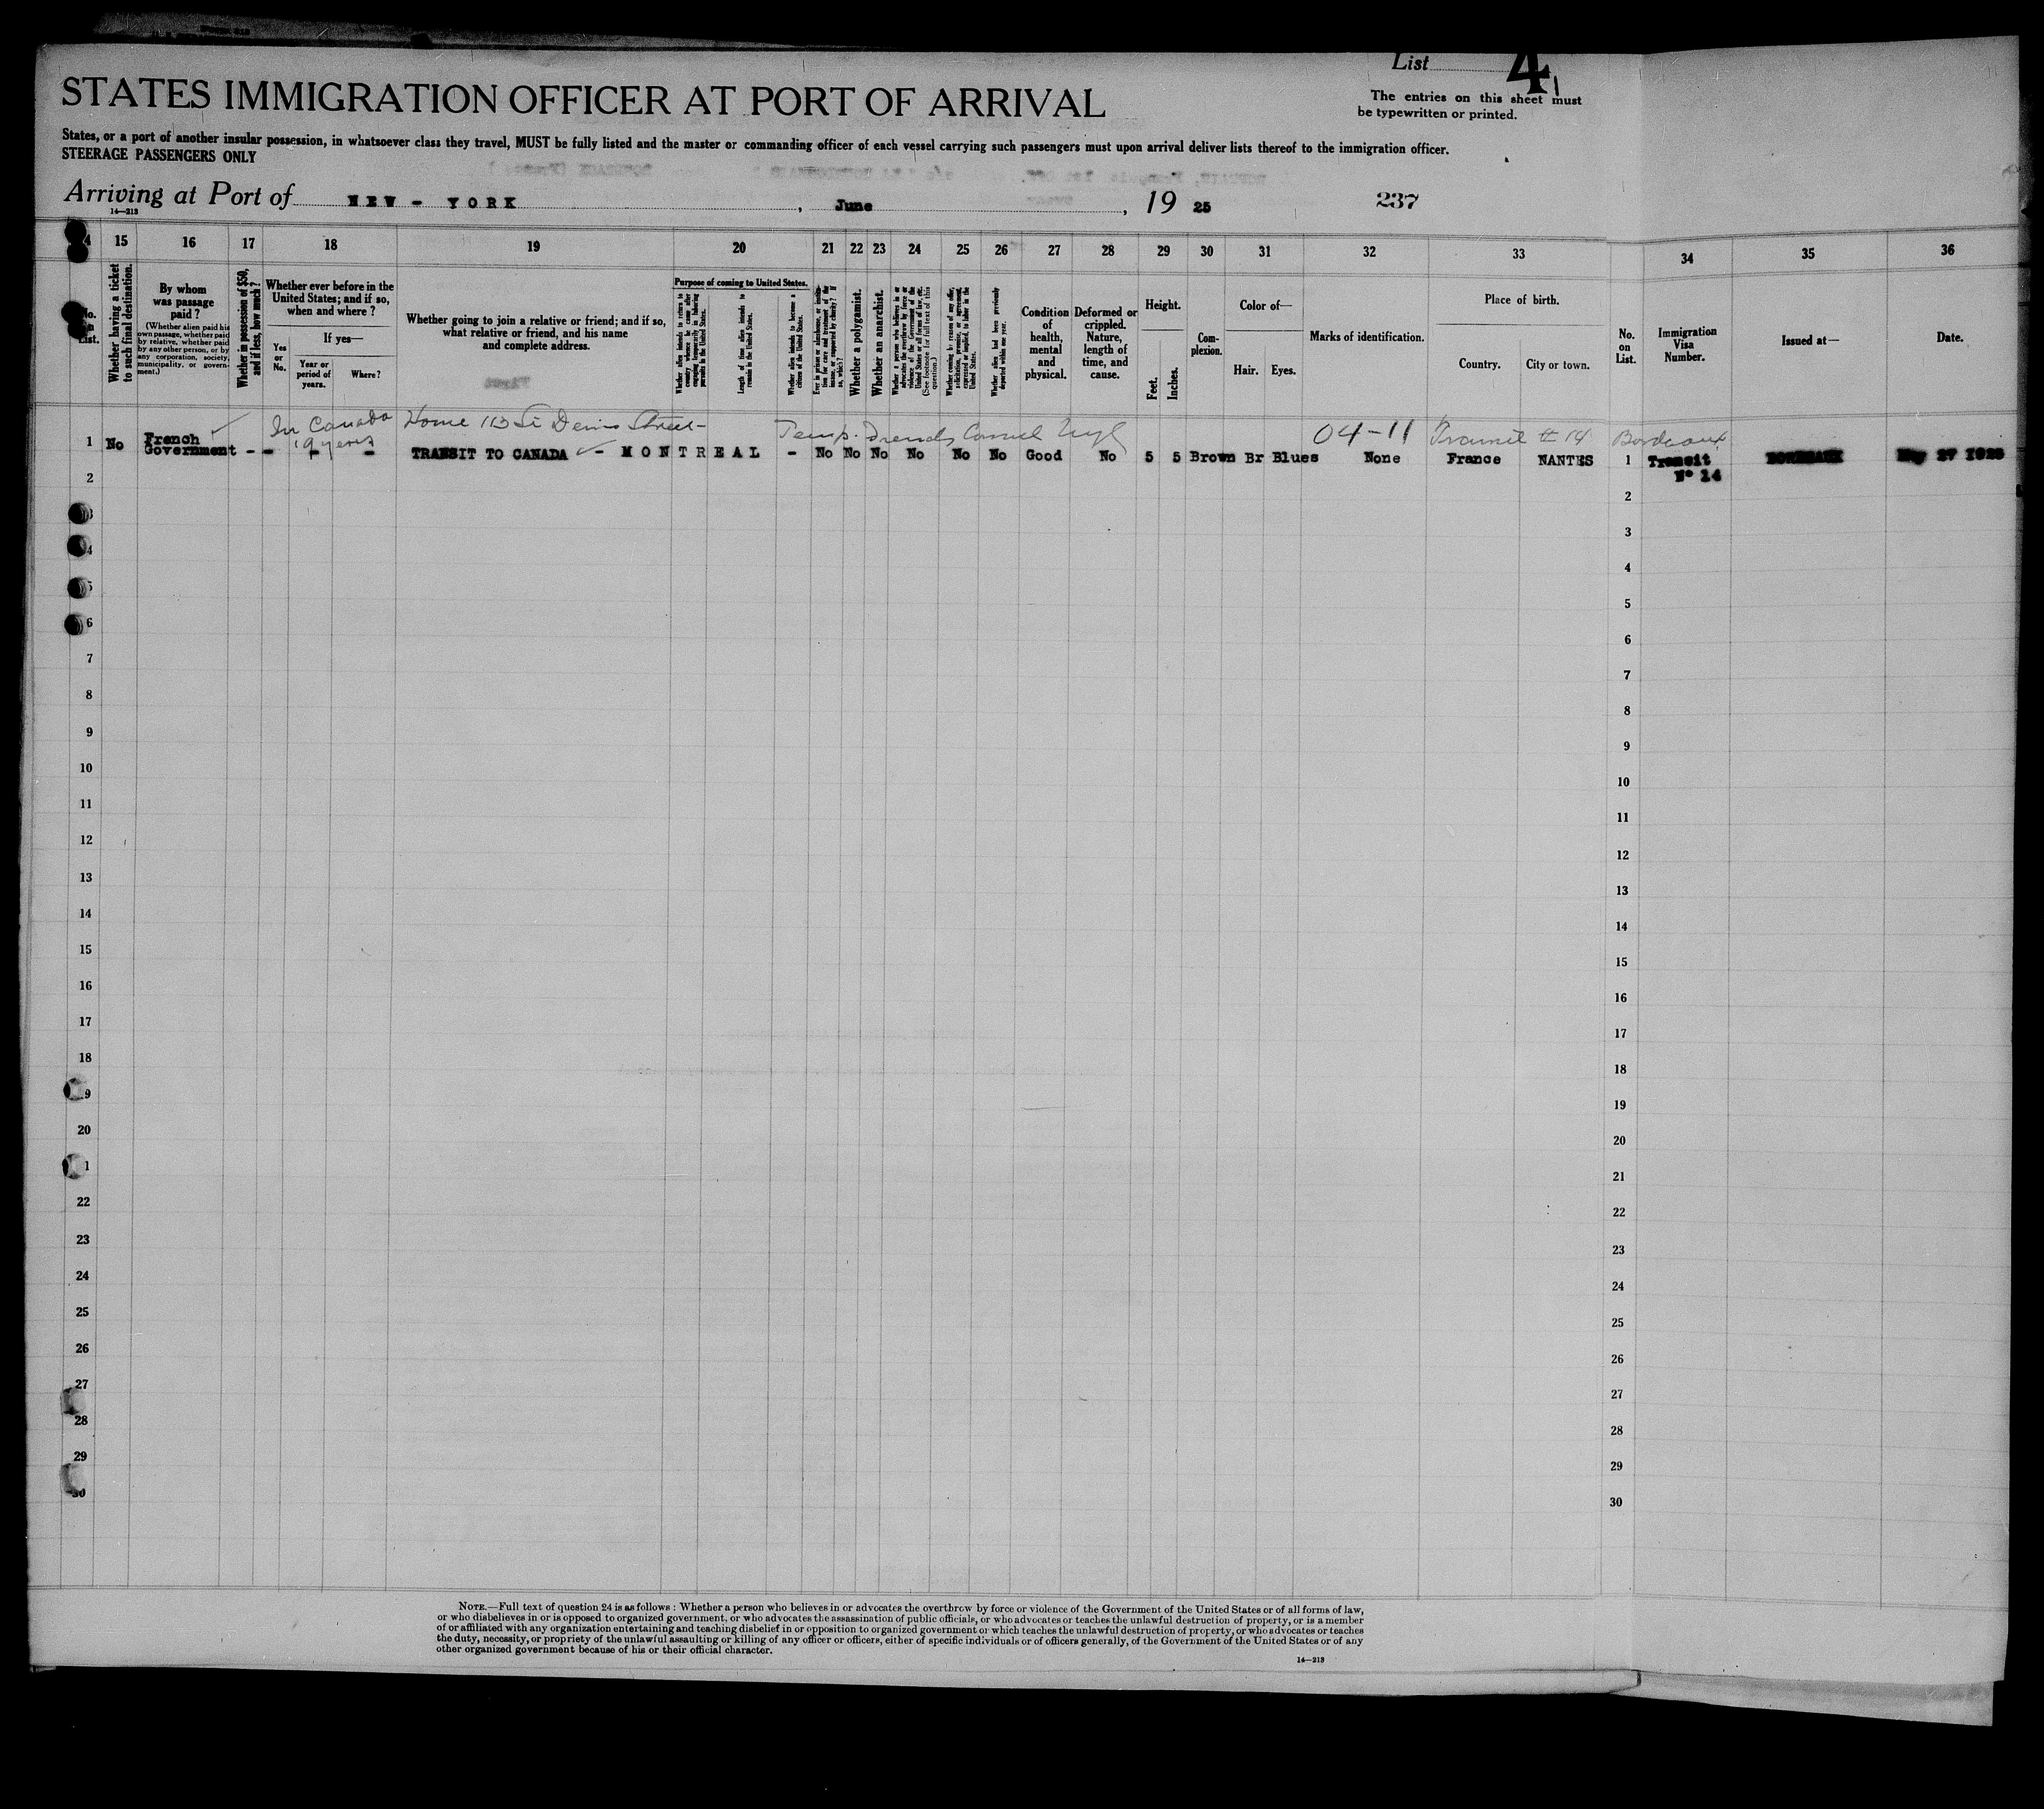 List 4
STATES IMMIGRATION OFFICER AT PORT OF ARRIVAL
The entries on this sheet must
be typewritten or printed.
States, or a port of another insular possession, in whatsoever class they travel, MUST be fully listed and the master or commanding officer of each vessel carrying such passengers must upon arrival deliver lists thereof to the immigration officer.
STEERAGE PASSENGERS ONLY
Arriving at Port of NEW - YORK, June, 19 25 237
14—213
15 16 17 18 19 20 21 22 23 24 25 26 27 28 29 30 31 32 33 34 35 36
No. on List.
Whether having a ticket to such final destination.
By whom was passage paid ?
(Whether alien paid his own passage, whether paid by relative, whether paid by any other person, or by any corporation, society, municipality, or government.)
Whether in possession of $50, and if less, how much ?
Whether ever before in the United States; and if so, when and where ?
If yes—
Yes or No.
Year or period of years.
Where?
Whether going to join a relative or friend; and if so, what relative or friend, and his name and complete address.
Purpose of coming to United States.
Whether alien intends to return to country whence he came after engaging temporarily in laboring pursuits in the United States.
Length of time alien intends to remain in the United States.
Whether alien intends to become a citizen of the United States.
Ever in prison or almshouse, or institution for care and treatment of the insane, or supported by charity? If so, which?
Whether a polygamist.
Whether an anarchist.
Whether a person who believes in or advocates the overthrow by force or violence of the Government of the United States or all forms of law, etc. (See footnote for full text of this question.)
Whether coming by reason of any offer, solicitation, promise, or agreement, expressed or implied, to labor in the United States.
Whether alien had been previously deported within one year.
Condition of health, mental and physical.
Deformed or crippled. Nature, length of time, and cause.
Height.
Feet. Inches.
Complexion.
Color of—
Hair. Eyes.
Marks of identification.
Place of birth.
Country. City or town.
No. on List.
Immigration Visa Number.
Issued at—
Date.
In Canada Home 113 St Denis Street- 04-11 Transit # 14 Bordeaux
19 years Temp.
1 No French Government - - - - TRANSIT TO CANADA - MONTREAL - No No No No No No Good No 5 5 Brown Br Blues None France NANTES 1 Transit N° 14 BORDEAUX May 27 1925
2 2
3 3
4 4
5 5
6 6
7 7
8 8
9 9
10 10
11 11
12 12
13 13
14 14
15 15
16 16
17 17
18 18
9 19
20 20
1 21
22 22
23 23
24 24
25 25
26 26
27 27
28 28
29 29
30 30
NOTE.—Full text of question 24 is as follows : Whether a person who believes in or advocates the overthrow by force or violence of the Government of the United States or of all forms of law,
or who disbelieves in or is opposed to organized government, or who advocates the assassination of public officials, or who advocates or teaches the unlawful destruction of property, or is a member
of or affiliated with any organization entertaining and teaching disbelief in or opposition to organized government or which teaches the unlawful destruction of property, or who advocates or teaches
the duty, necessity, or propriety of the unlawful assaulting or killing of any officer or officers, either of specific individuals or of officers generally, of the Government of the United States or of any
other organized government because of his or their official character.
14—213